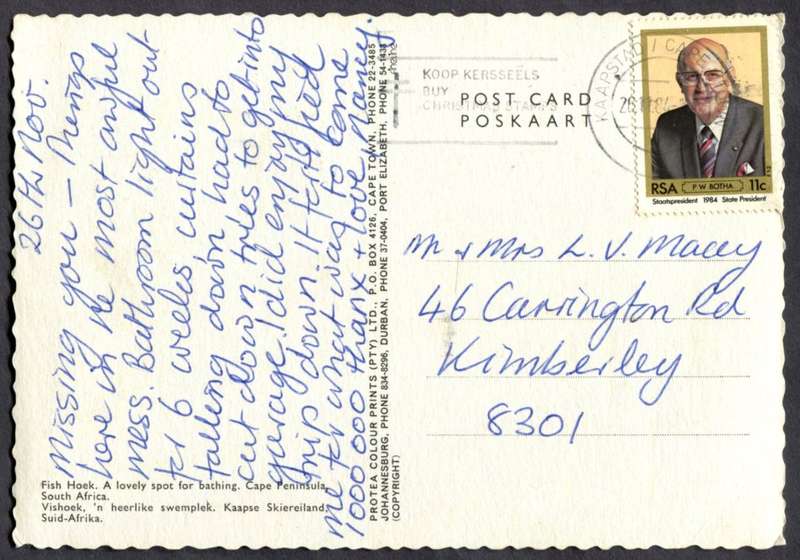 26th Nov.
Missing you – things
here in the most awful
mess. Bathroom light out
for 6 weeks curtains
falling down had to
cut down tries to get into
garage. I did enjoy my
trip down. It fortified
me for what was to come
1000 000 thanx + love Nancy.
Fish Hoek. A lovely spot for bathing. Cape Peninsula,
South Africa.
Vishoek, 'n heerlike swemplek. Kaapse Skiereiland,
Suid-Afrika.
PROTEA COLOUR PRINTS (PTY) LTD., P.O. BOX 4126, CAPE TOWN, PHONE 22-3485
JOHANNESBURG, PHONE 834-8296, DURBAN, PHONE 37-0404, PORT ELIZABETH, PHONE 54-1438
(COPYRIGHT)
KOOP KERSSEELS
BUY
CHRISTMAS STAMPS
POST CARD
POSKAART
KAAPSTAD
RSA P W BOTHA 11c
Staatspresident 1984 State President
Mr & Mrs L. V. Macey
46 Carrington Rd
Kimberley
8301